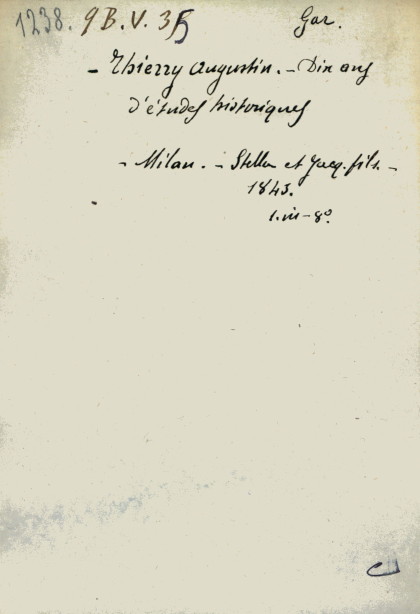 1238. 9 B. V. 35 Gar.
- Thierry Augustin. - Dix ans
d'études historiques
- Milan. - Stella et Jacq. fils. -
1843.
1. in - 8º.